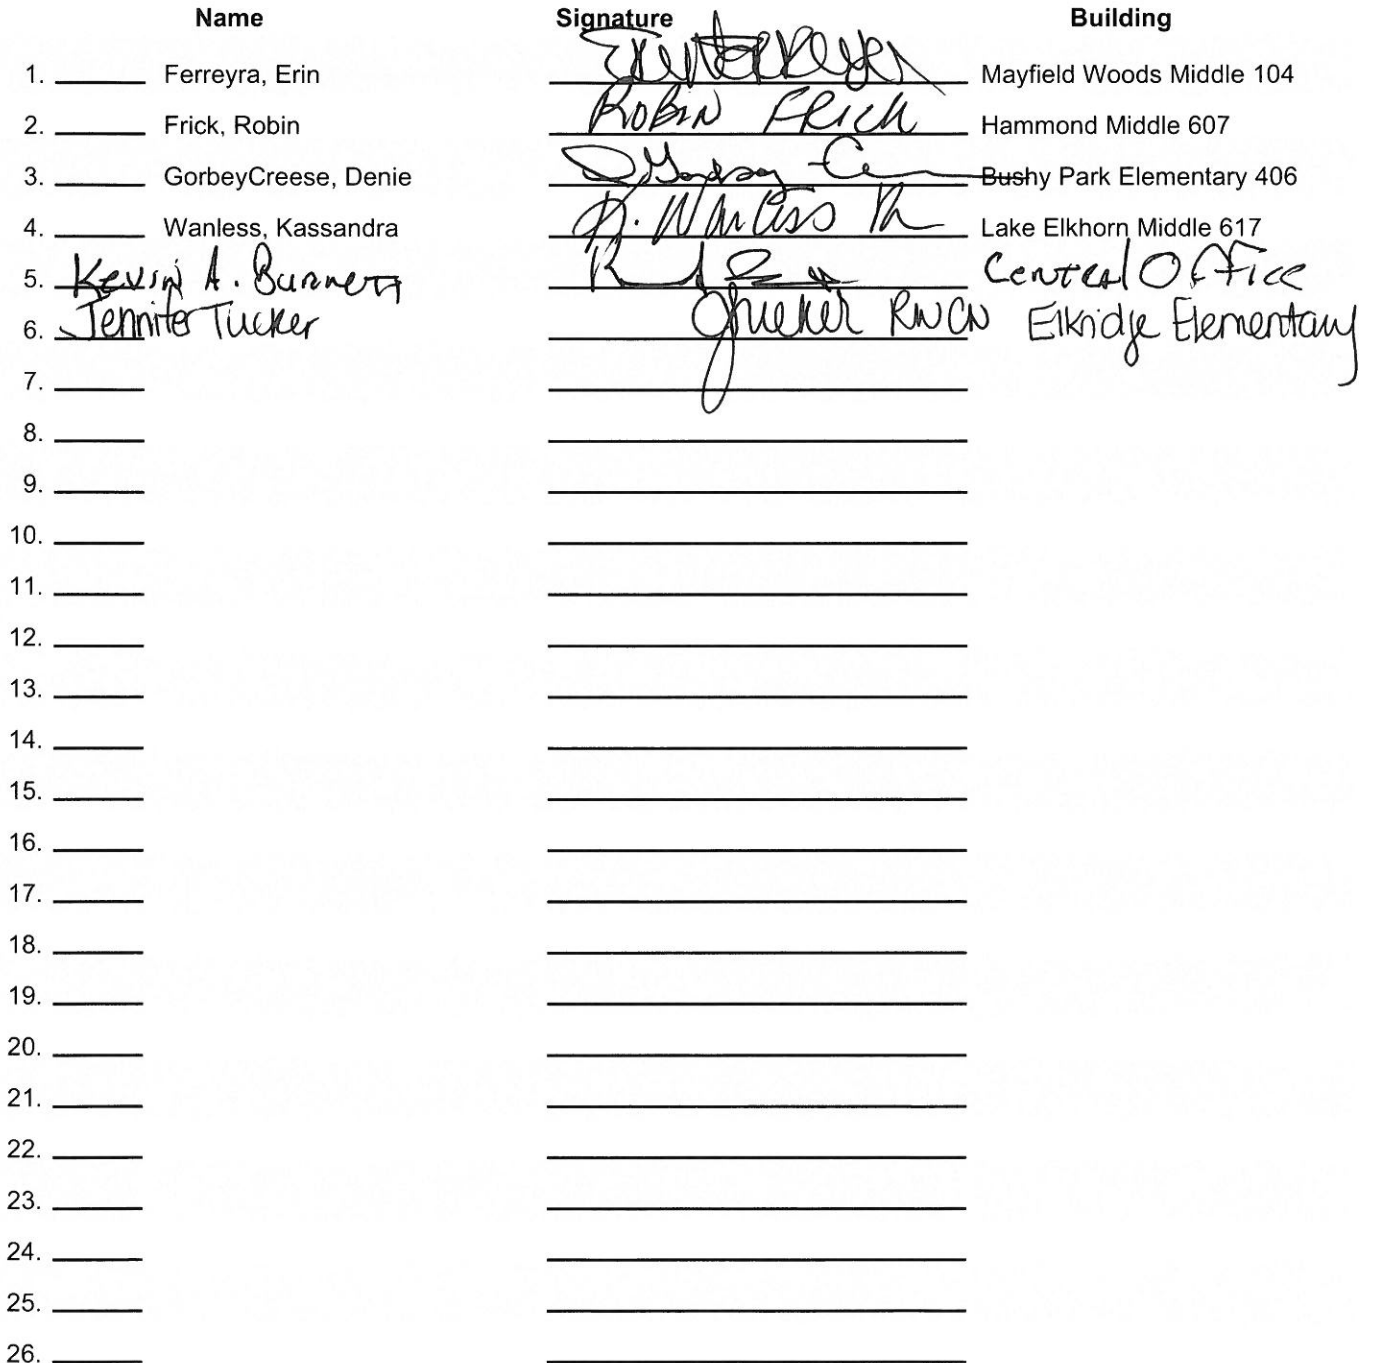 Name Signature Building
1. Ferreyra, Erin Mayfield Woods Middle 104
2. Frick, Robin ROBIN FRICK Hammond Middle 607
3. GorbeyCreese, Denie Bushy Park Elementary 406
4. Wanless, Kassandra K. Wanless Lake Elkhorn Middle 617
5. Kevin A. Burnett Central Office
6. Jennifer Tucker JTucker Elkridge Elementary
7.
8.
9.
10.
11.
12.
13.
14.
15.
16.
17.
18.
19.
20.
21.
22.
23.
24.
25.
26.